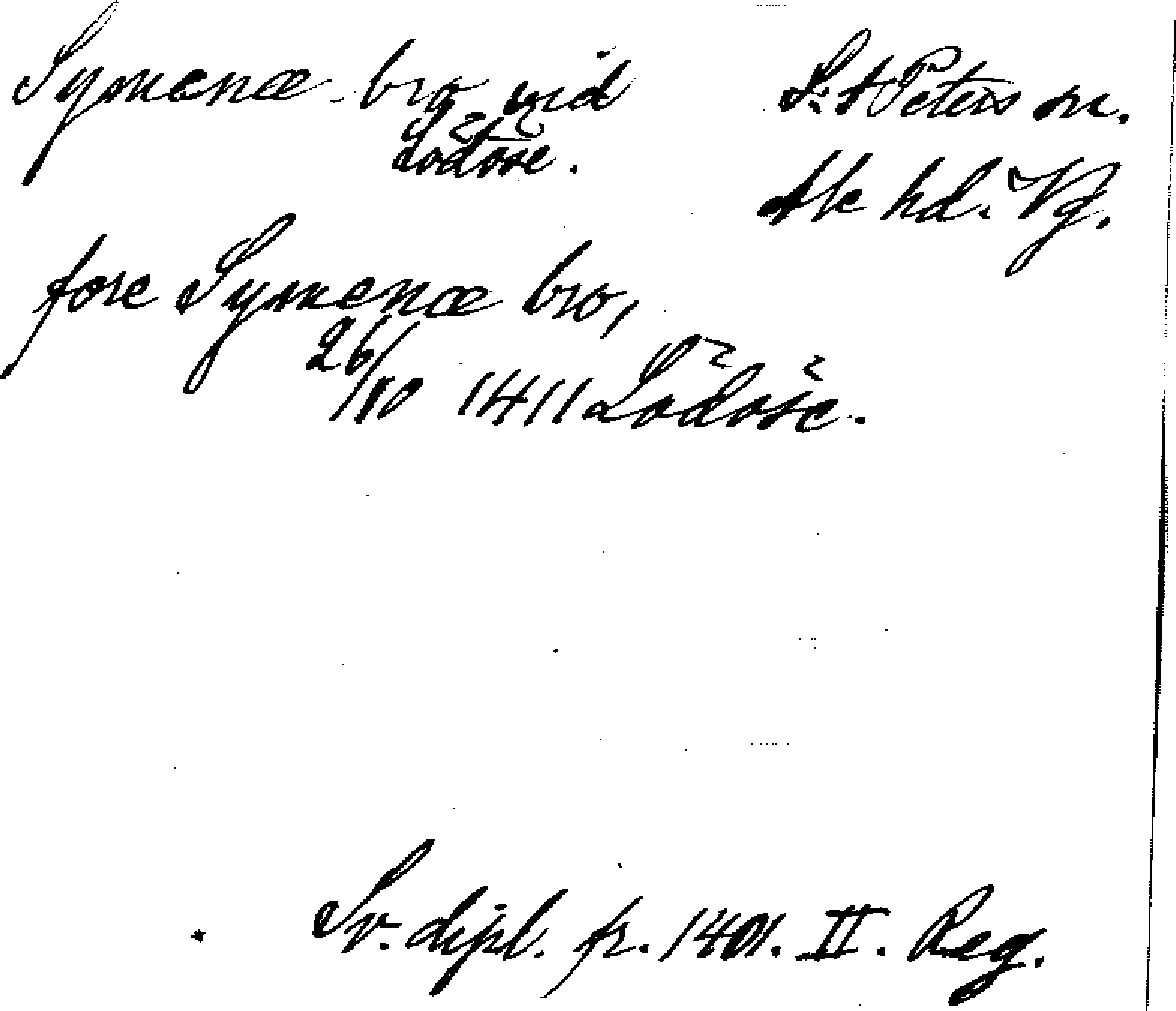 Symenæ-bro vid
Lödöse.
S:t Peters sn.
Ale hd. Vg.
fore Symenæ bro,
26/10 1411 Lödöse.
Sv. dipl. fr. 1401. II. Reg.